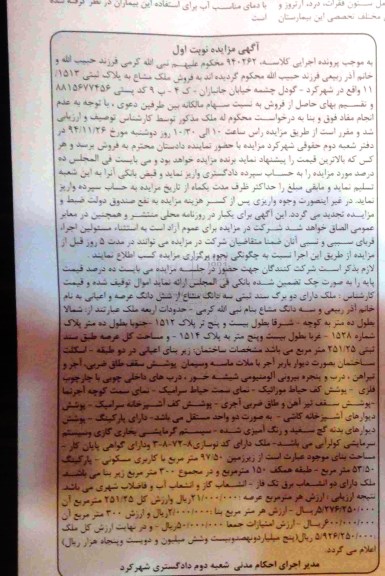 با دمای مناسب آب برای استفاده این بیماران در نظر گرفته شده
آگهی مزایده نوبت اول
به موجب پرونده اجرایی کلاسه، ۹۴۰۲۶۲ محکوم علیهم نبی الله کرمی فرزند حبیب الله و
خانم آذر ربیعی فرزند حبیب الله محکوم گردیده اند به فروش ملک مشاع به پلاک ثبتی ۱۵۱۳/
۱۱ واقع در شهرکرد - گودل چشمه خیابان جانبازان - ک ۴ - پ ۹ کد پستی ۸۸۱۵۶۷۷۴۵۶
و تقسیم بهای حاصل از فروش به نسبت سهام مالکانه بین طرفین دعوی ، با توجه به عدم
انجام مفاد فوق و بنا به درخواست محکوم له ملک مذکور توسط کارشناس توصیف و ارزیابی
شد و مقرر است از طریق مزایده راس ساعت ۱۰ الی ۱۰/۳۰ روز دوشنبه مورخ ۹۴/۱۱/۲۶ در
دفتر شعبه دوم حقوقی شهرکرد مزایده با حضور نماینده دادستان محترم به فروش برسد و هر
کس که بالاترین قیمت را پیشنهاد نماید برنده مزایده خواهد بود و می بایست فی المجلس ده
درصد مورد مزایده را به حساب سپرده دادگستری واریز نماید و فیض بانکی آنرا به این شعبه
تسلیم نماید و مابقی مبلغ را حداکثر ظرف مدت یکماه از تاریخ مزایده به حساب سپرده واریز
نماید. در غیر اینصورت وجوه واریزی پس از کسر هزینه مزایده به نفع صندوق دولت ضبط و
مزایده تجدید می گردد. این آگهی برای یکبار در روزنامه محلی منتشر و همچنین در معابر
عمومی الصاق خواهد شد شرکت در مزایده برای عموم آزاد است به استثناء مسئولین اجرا،
قربای سببی و نسبی آنان ضمنا متقاضیان شرکت در مزایده می توانند در مدت ۵ روز قبل از
مزایده از طریق این اجرا نسبت به چگونگی نحوه برگزاری مزایده کسب اطلاع نمایند.
لازم بذکر است شرکت کنندگان جهت حضور در جلسه مزایده می بایست ده درصد قیمت
پایه را به صورت چک تضمین شده بانکی فی المجلس ارائه نماید اموال توقیف شده و قیمت
کارشناس : ملک دارای دو برگ سند ثبتی سه دانگ مشاع از شش دانگ عرصه و اعیانی به نام
خانم آذر ربیعی و سه دانگ مشاع بنام نبی الله کرمی - حدودات اربعه ملک عبارتند از: شمالا
بطول ده متر به کوچه - شرقا بطول بیست و پنج تر پلاک ۱۵۱۲ -جنوبا بطول ده متر پلاک
شماره ۱۵۲۸ - غربا بطول بیست وپنج متر به پلاک ۱۵۱۴ - و مساحت کل عرصه طبق سند
ثبتی ۲۵۱/۲۵ متر مربع می باشد مشخصات ساختمان: زیر بنای اعیانی در دو طبقه - اسکلت
ساختمان بصورت دیوار باربر آجر با ملات ماسه وسیمان پوشش سقف طاق ضربی، آجر و
تیرآهن - درب و پنجره بیرونی آلومینیومی شیشه خور - درب های داخلی چوبی با چارچوب
فلزی - پوشش کف حیاط موزائیک - نمای سمت حیاط سرامیک - نمای سمت کوچه آجرنما
-پوشش سقف تیر آهن و طاق ضربی آجری - پوشش کف آشپزخانه سرامیک - پوشش
دیوارهای آشپزخانه کاشی - به صورت دو واحد مستقل می باشد- دارای پارکینگ - پوشش
دیوارهای بدنه گچ سفید و رنگ آمیزی شده - سیستم گرمایشی بخاری گازی وسیستم
سرمایشی کولرآبی می باشد- ملک دارای کد نوسازی ۸-۷۲-۸-۳ ودارای گواهی پایان کار -
مساحت بنای موجود عبارت است از زیرزمین ۹۷/۵۰ متر مربع با کاربری مسکونی - پارکینگ
۵۳/۵۰ متر مربع - طبقه همکف ۱۵۰ مترمربع و در مجموع ۳۰۰ متر مربع زیر بنا می باشد.
ملک دارای دو انشعاب برق تک فاز - انشعاب گاز و انشعاب آب و فاضلاب شهری می باشد.
نتیجه ارزیابی : ارزش هر مترمربع عرصه ۲۱/۰۰۰/۰۰۰ریال وارزش کل ۲۵۱/۲۵ مترمربع آن
۵/۲۷۶/۲۵۰/۰۰۰ریال- ارزش هر متر مربع بنا ۲/۰۰۰/۰۰۰ریال و ارزش ۳۰۰ متر مربع آن
۶۰۰/۰۰۰/۰۰۰ریال - ارزش امتیازات جمعا ۵۰/۰۰۰/۰۰۰ریال - و در نهایت ارزش کل ملک
۵/۹۲۶/۲۵۰/۰۰۰ ریال(پنج میلیاردونهصدوبیست وشش میلیون و دویست وپنجاه هزار ریال)
اعلام می گردد.
مدیر اجرای احکام مدنی شعبه دوم دادگستری شهرکرد